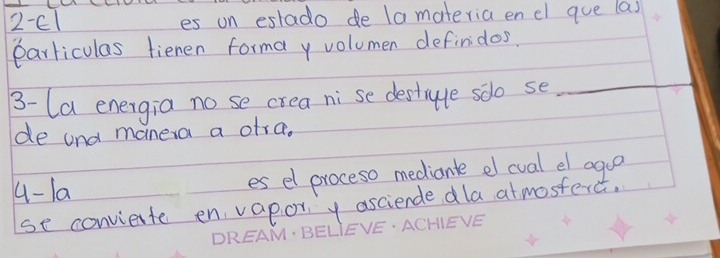 2-El es un estado de la materia en el que las
particulas tienen forma y volumen definidos.
3-La energia no se crea ni se destruye sólo se
de una manera a otra.
4-la es el proceso mediante el cual el agua
se convierte en vapor y asciende a la atmosfera.
DREAM · BELIEVE · ACHIEVE